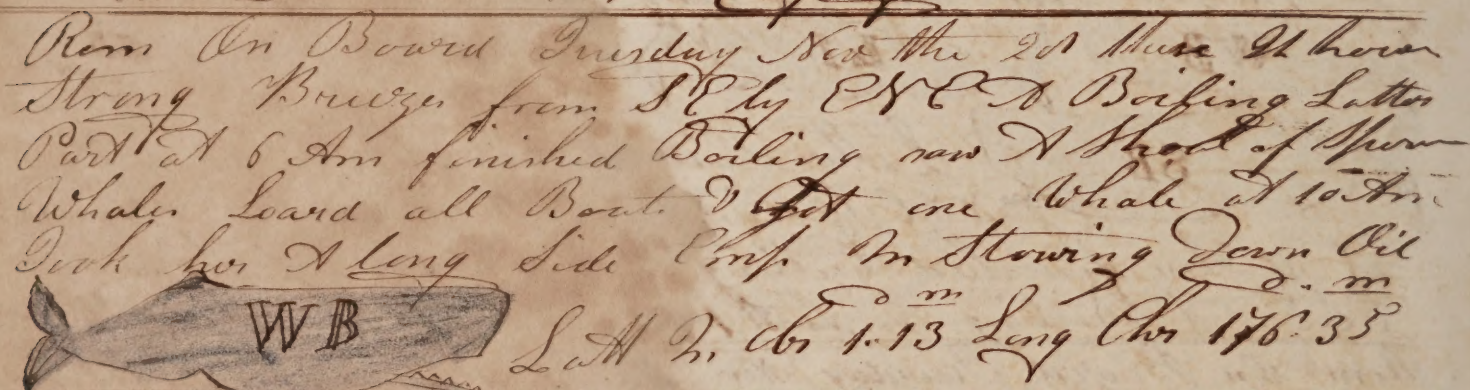 Rem On Board Tuesday Nov the 20 these 24 hours
Strong Breezes from S Ely ENE A Boiling Latter
Part at 6 Am finished Boiling saw A Shoal of Sperm
Whales Loard all Boats & Got one Whale at 10 Am
Took her A long Side Emp In Stowing Down Oil
D m D. m
WB
Latt In Obs 1.13 Long Chr 176.35